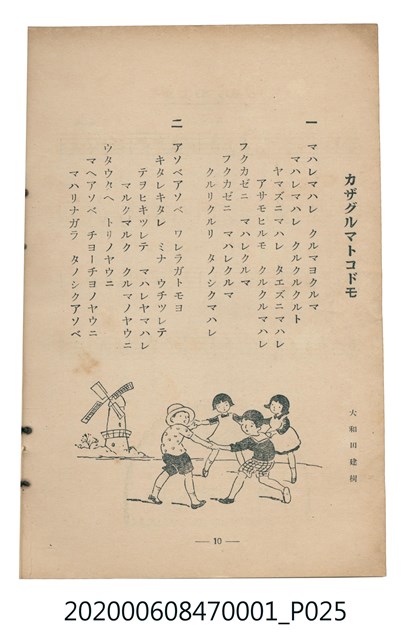 カザグルマトコドモ
大和田建樹
一
マハレマハレ クルマヨクルマ
マハレマハレ クルクルクルト
ヤマズニマハレ タエズニマハレ
アサモヒルモ クルクルマハレ
フクカゼニ マハレクルマ
フクカゼニ マハレクルマ
クルリクルリ タノシクマハレ
二
アソベアソベ ワレラガトモヨ
キタレキタレ ミナ ウチツレテ
テヲヒキツレテ マハレヤマハレ
マルクマルク クルマノヤウニ
ウタウタヘ トリノヤウニ
マヘアソベ チヨーチヨノヤウニ
マハリナガラ タノシクアソベ
— 10 —
202000608470001_P025